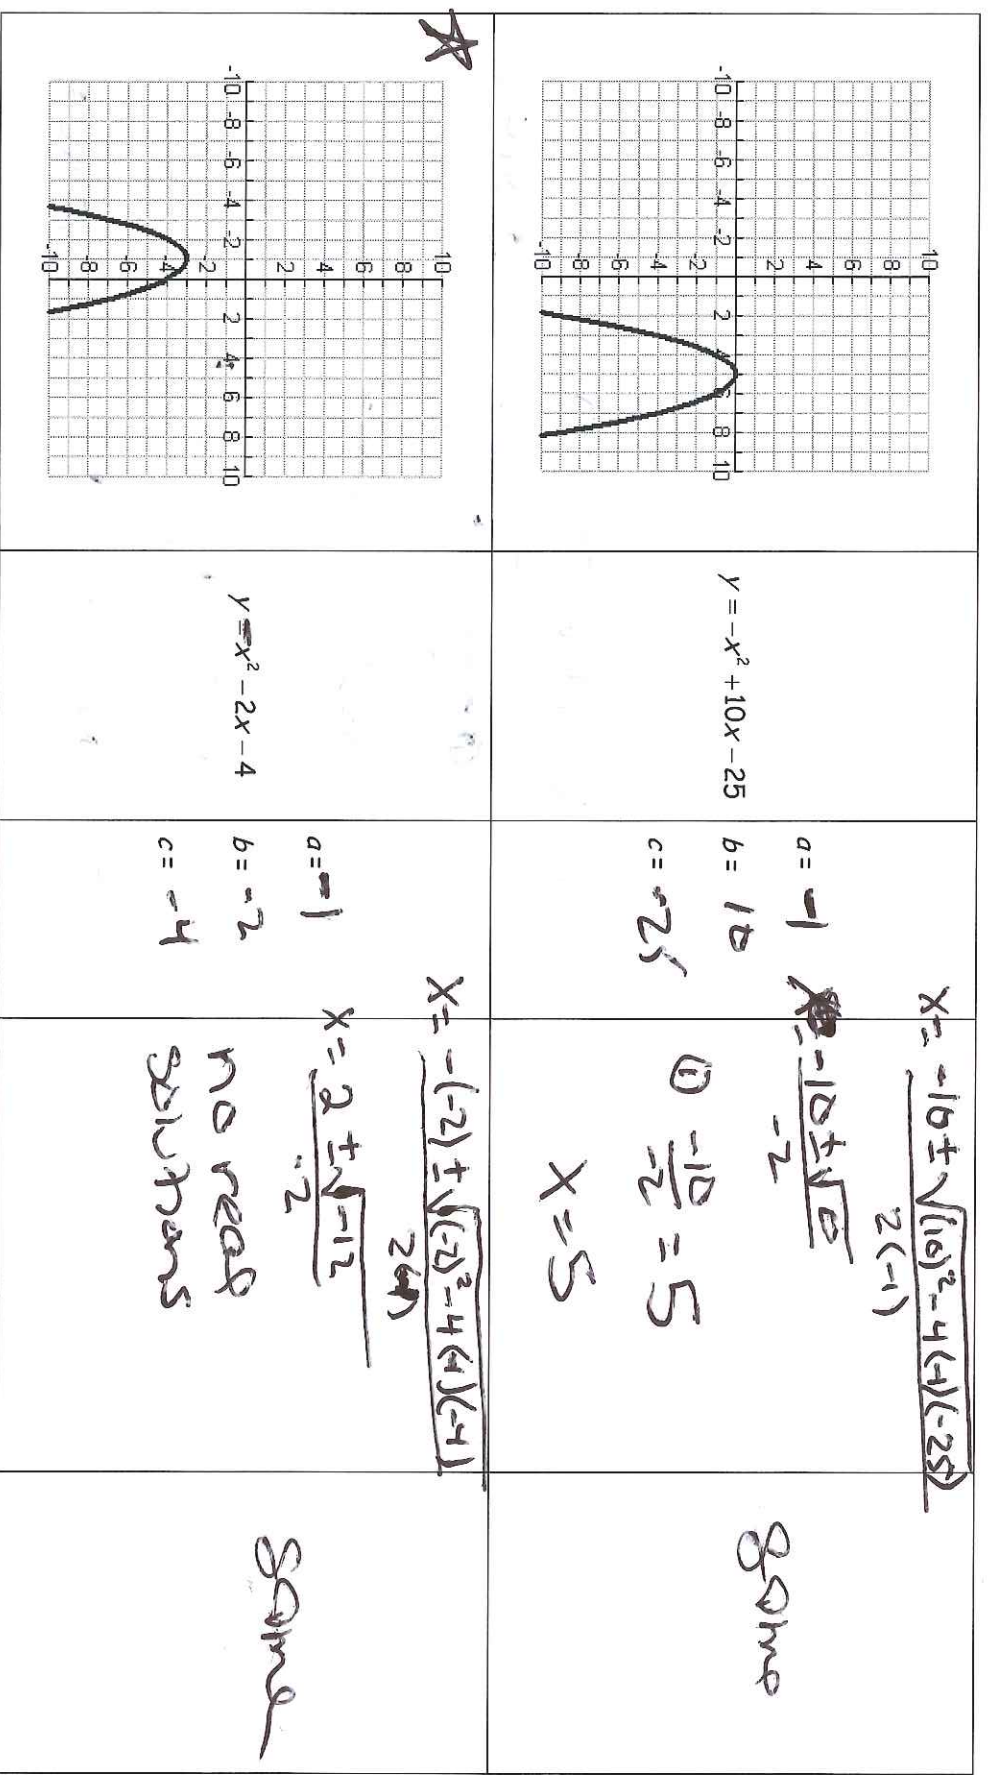 10
8
6
4
2
-10 -8 -6 -4 -2 2 4 6 8 10
-2
-4
-6
-8
-10
y = -x² + 10x - 25
a = -1
b = 10
c = -25
x = -10 ± √(10)² - 4(-1)(-25)
2(-1)
x = -10 ± √0
-2
① -10 = 5
-2
x = 5
same
10
8
6
4
2
-10 -8 -6 -4 -2 2 4 6 8 10
-2
-4
-6
-8
-10
y = -x² - 2x - 4
a = -1
b = -2
c = -4
x = -(-2) ± √(-2)² - 4(-1)(-4)
2(-1)
x = 2 ± √-12
-2
no real
solutions
same